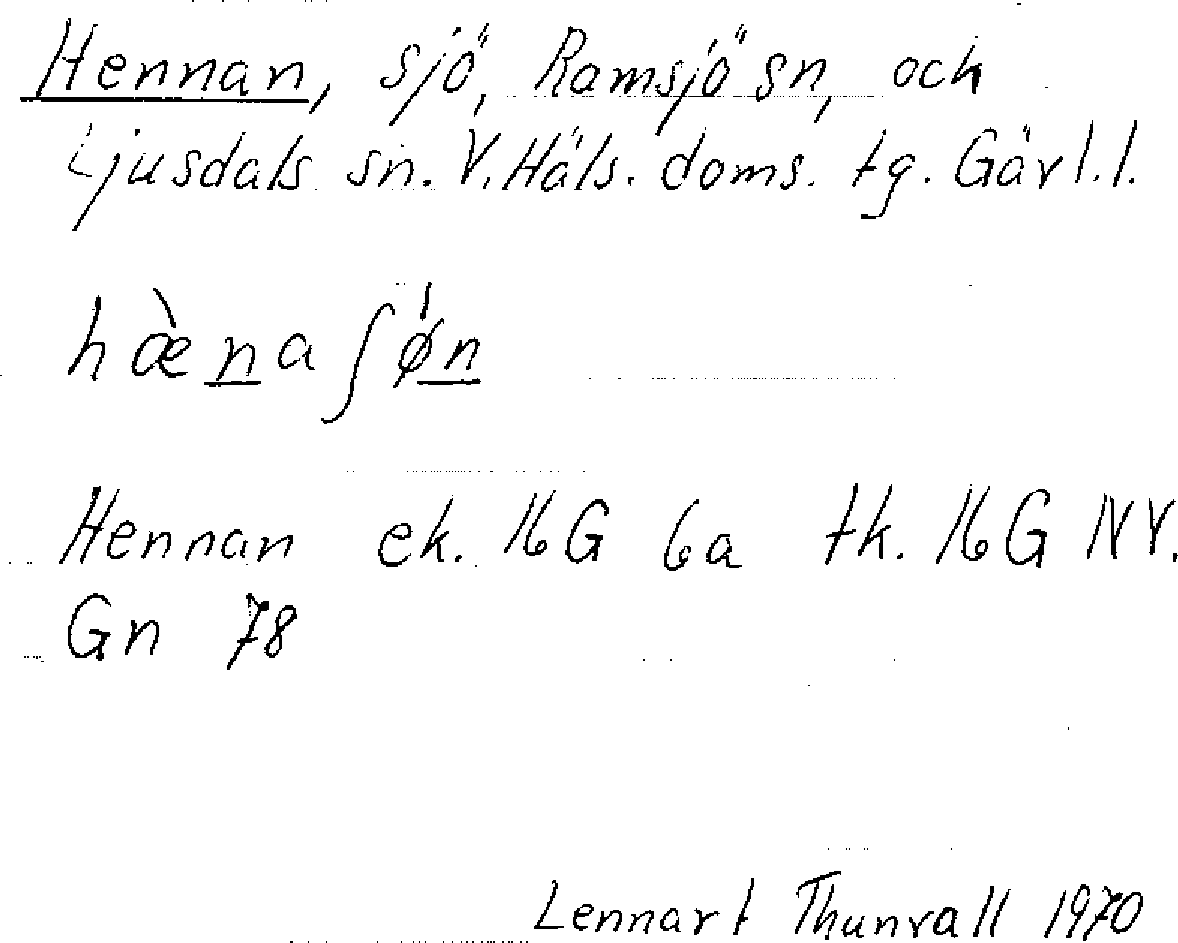 Hennan, sjö, Ramsjö sn, och
Ljusdals sn. V. Häls. doms. tg. Gävl. l.
hæ̀na ʃǿn
Hennan ek. 16G 6a tk. 16G NV.
Gn 78
Lennart Thunvall 1970